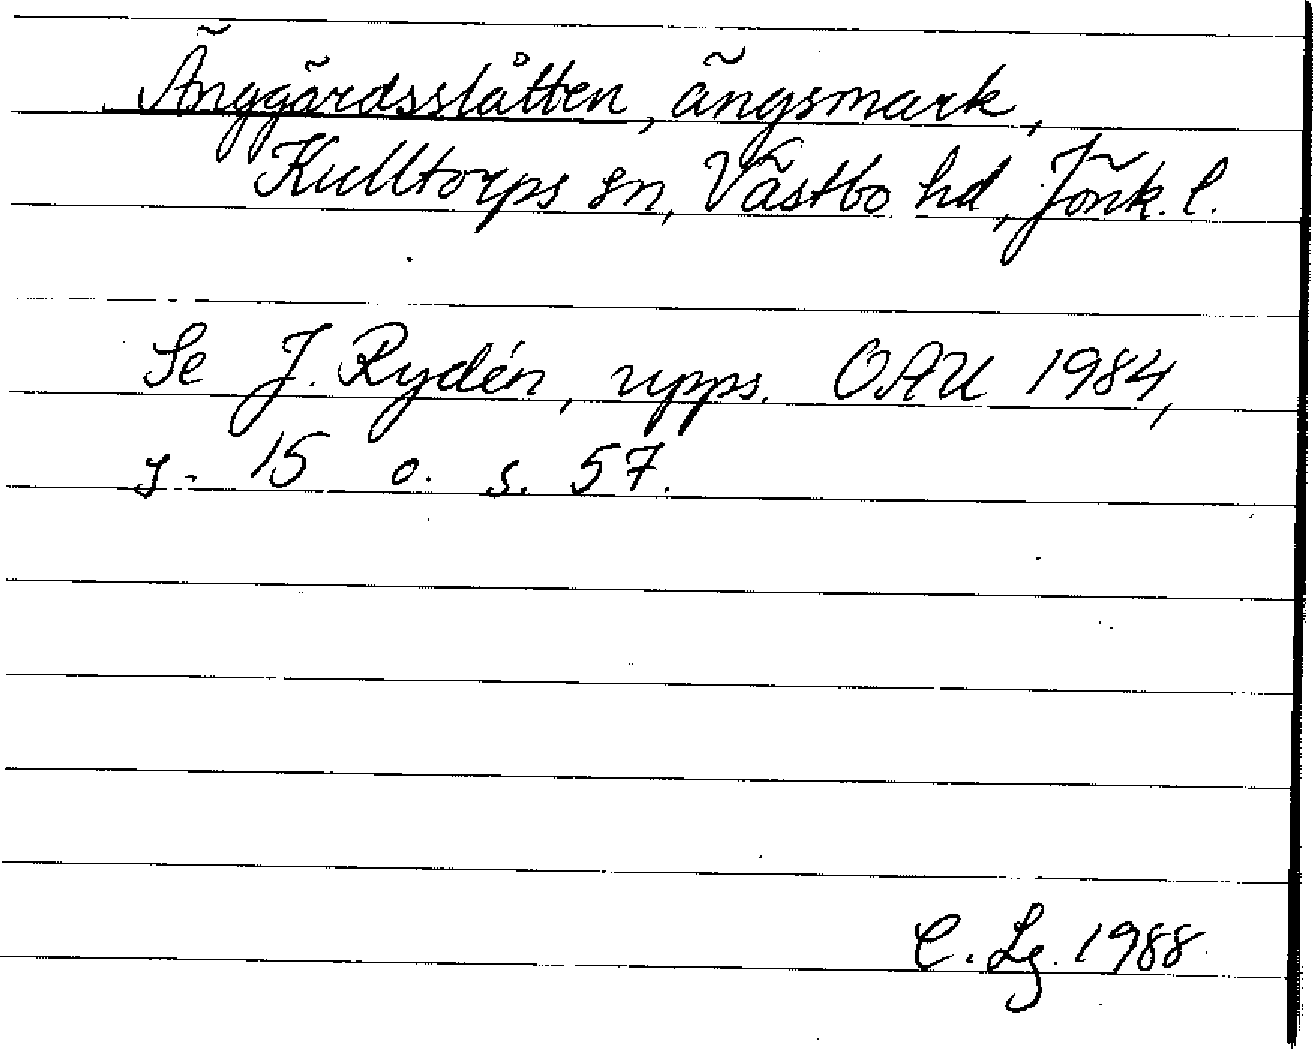 Änggärdsslåtten, ängsmark,
Kulltorps sn, Västbo hd, Jönk. l.
Se J. Rydén, upps. OAU 1984,
s. 15 o. s. 57.
C. Lg. 1988